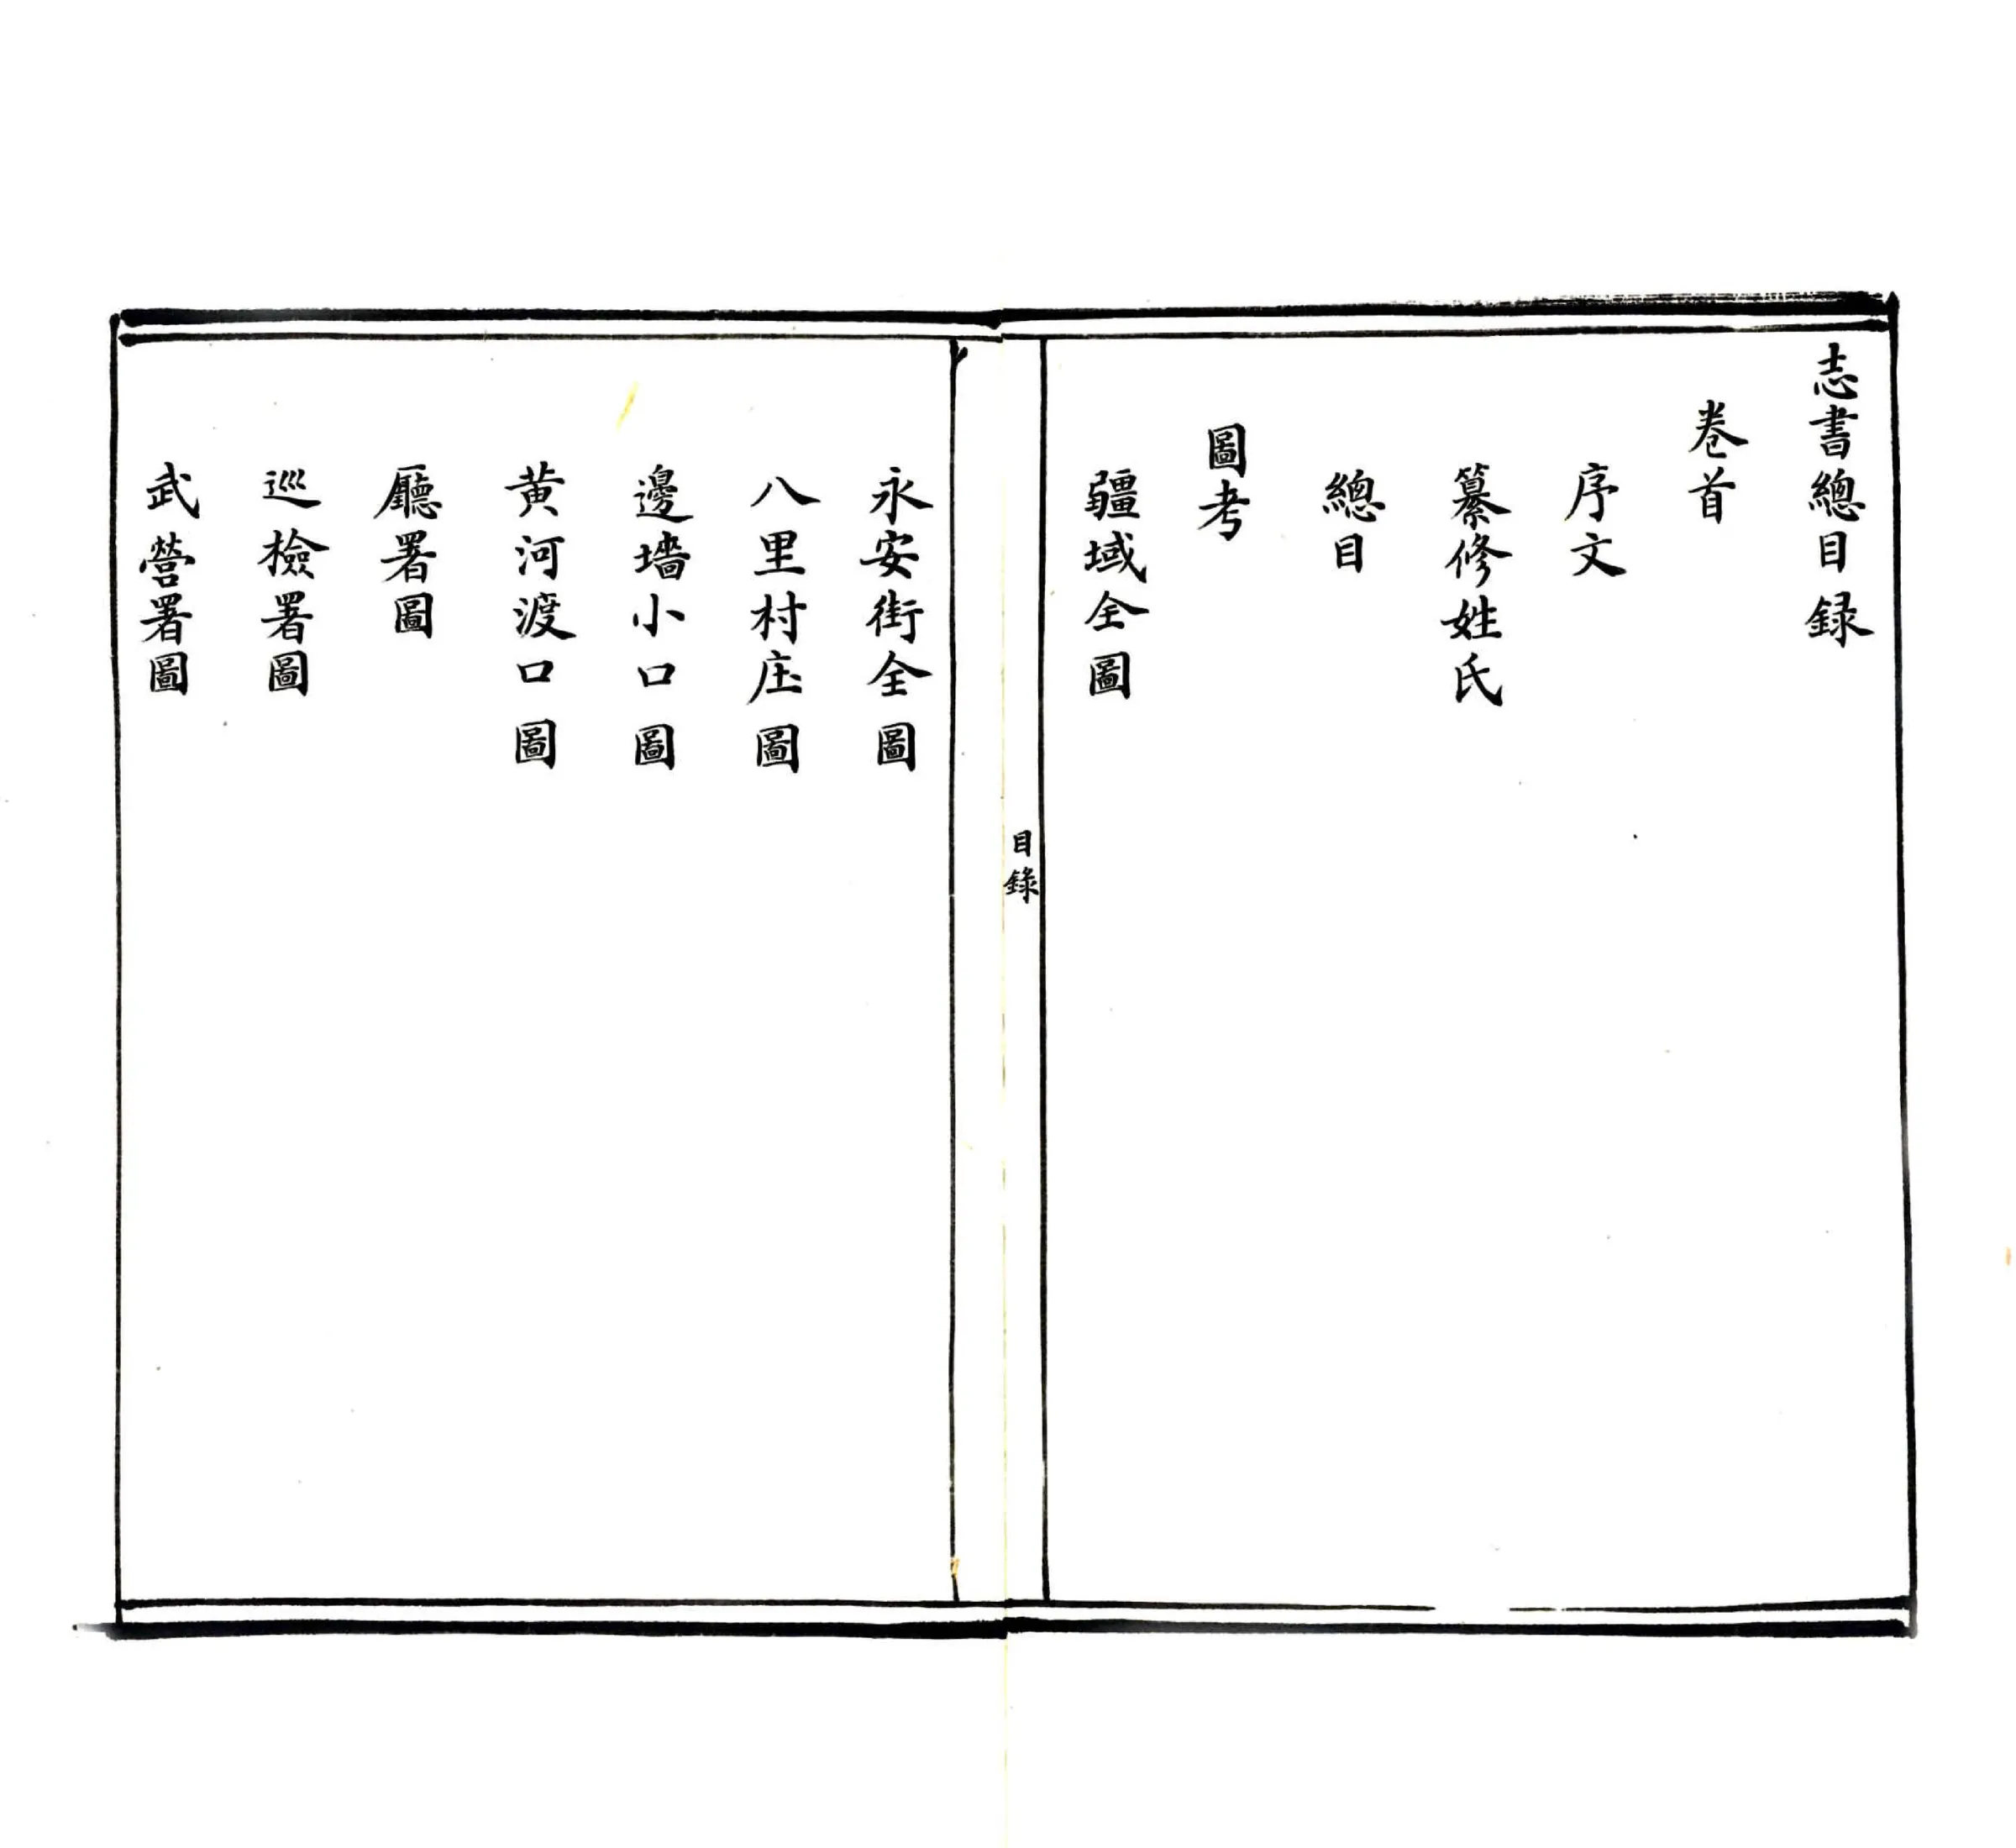 志書總目録
卷首
序文
纂修姓氏
總目
圖考
疆域全圖
目錄
永安街全圖
八里村庄圖
邊墻小口圖
黄河渡口圖
廳署圖
巡檢署圖
武營署圖